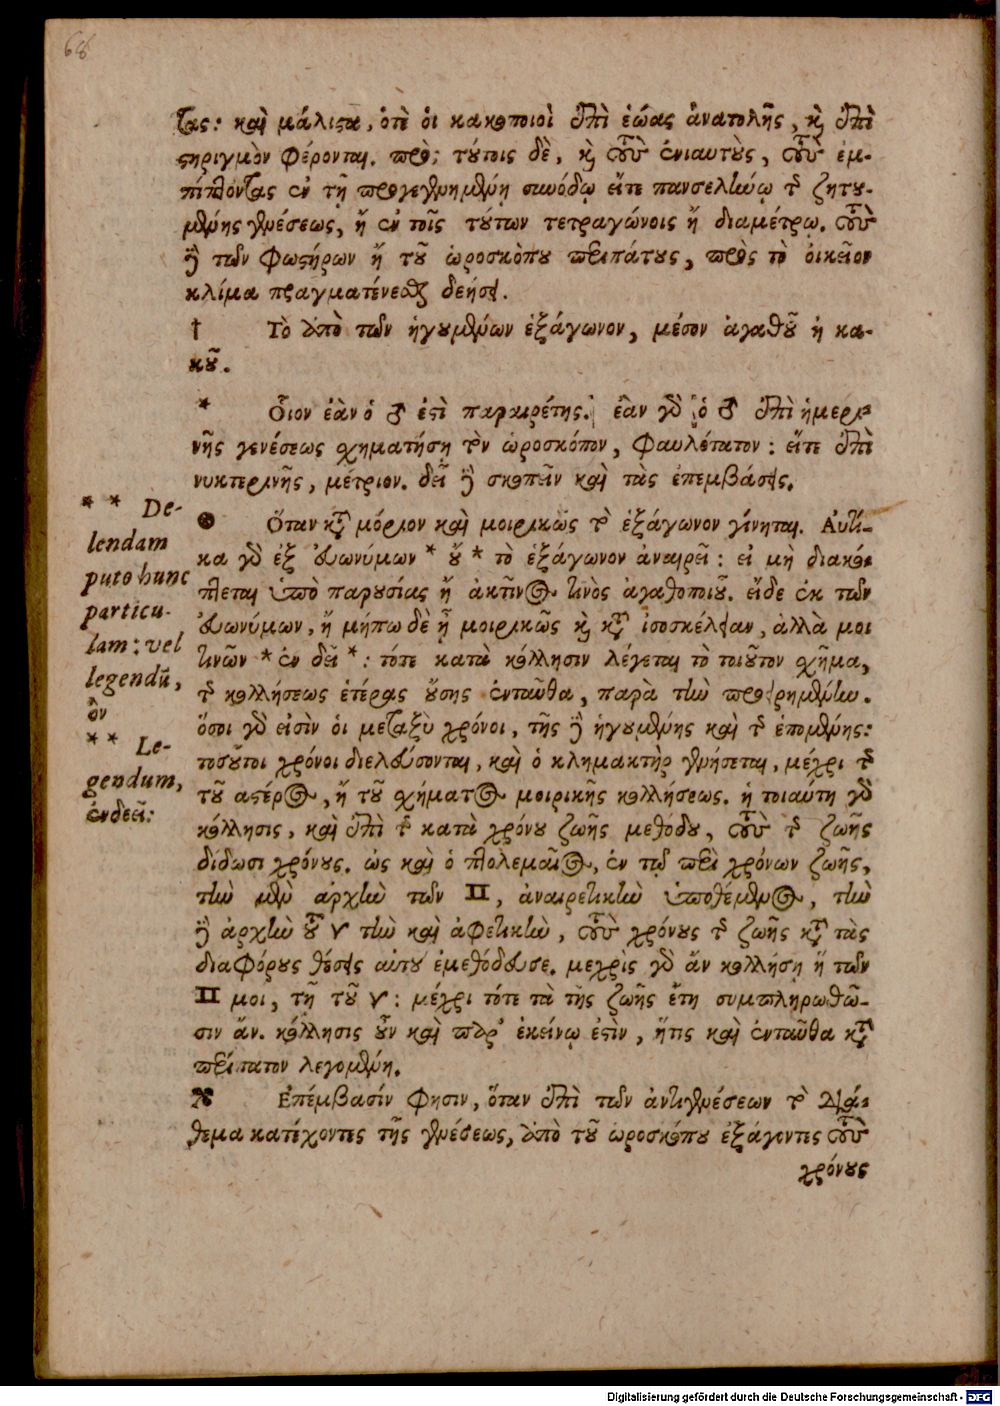 68
τας: καὶ μάλιστα, ὁτὲ οἱ κακοποιοὶ ἐπὶ ἑώας ἀνατολῆς, κὶ ἐπὶ
στηριγμὸν φέρονται. πρὸς τύτοις δὲ, κὶ τοὺς ἐνιαυτὺς, τοὺς ἐμ-
πίπτοντας ἐν τῇ προγεγενημένῃ συνόδῳ εἴτε πανσελήνῳ τῆς ζητυ-
μένης γενέσεως, ἢ ἐν τοῖς τύτων τετραγώνοις ἢ διαμέτρῳ. τοὺς
δὲ τῶν φωστήρων ἢ τοῦ ὡροσκόπου περιπάτους, πρὸς τὸ οἰκεῖον
κλίμα πραγματένεσθαι δεήσει.
† Τὸ ἀπὸ τῶν ἡγουμένων ἑξάγωνον, μέσον ἀγαθοῦ ἢ κα-
κοῦ.
* Οἷον ἐὰν ὁ ♂ ἐστὶ παραιρέτης. ἐὰν γὸ ὁ ♂ ἐπὶ ἡμερι-
νῆς γενέσεως χηματήσῃ τὸν ὡροσκόπον, φαυλότατον: εἴτε ἐπὶ
νυκτερινῆς, μέτριον. δεῖ δὲ σκοπεῖν καὶ τὰς ἐπεμβάσεις.
Ὅταν κατὰ μόριον καὶ μοιρικῶς τὸ ἑξάγωνον γίνηται. Αὐτί-
κα γὸ ἐξ εὐωνύμων * οὗ * τὸ ἑξάγωνον ἀναιρεῖ: εἰ μὴ διακό-
πτεται ὑπὸ παρουσίας ἢ ἀκτῖνος τινὸς ἀγαθοποιοῦ. εἴδε ἐκ τῶν
εὐωνύμων, ἢ μήπω δὲ ᾖ μοιρικῶς κὶ κατὰ ἰσοσκέλειαν, ἀλλὰ μοι
τινῶν * ἐν δεῖ *: τότε κατὰ κόλλησιν λέγεται τὸ τοιοῦτον χῆμα,
τῆς κολλήσεως ἑτέρας οὔσης ἐνταῦθα, παρὰ τὴν προειρημένην.
ὅσοι γὸ εἰσὶν οἱ μεταξὺ χρόνοι, τῆς δὲ ἡγουμένης καὶ τῆς ἑπομένης:
τοσοῦτοι χρόνοι διελεύσονται, καὶ ὁ κλημακτὴρ γενήσεται, μέχρι τῆς
τοῦ ἀστέρος, ἢ τοῦ χήματος μοιρικῆς κολλήσεως. ἡ τοιαύτη γὸ
κόλλησις, καὶ ἐπὶ τῆς κατὰ χρόνου ζωῆς μεθόδου, τοὺς τῆς ζωῆς
δίδωσι χρόνους. ὡς καὶ ὁ πτολεμαῖος, ἐν τῷ περὶ χρόνων ζωῆς,
τὴν μὲν ἀρχὴν τῶν ♊, ἀναιρετικὴν ὑποθέμενος, τὴν
δὲ ἀρχὴν τοῦ ♈ τὴν καὶ ἀφετικὴν, τοὺς χρόνους τῆς ζωῆς κατὰ τὰς
διαφόρους θέσεις αὐτοῦ ἐμεθόδευσε. μεχρὶς γὸ ἂν κολλήσῃ ἢ τῶν
♊ μοι, τῇ τοῦ ♈: μέχρι τότε τὰ τῆς ζωῆς ἔτη συμπληρωθῶ-
σιν ἄν. κόλλησις οὖν καὶ παρ' ἐκείνῳ ἐστὶν, ἥτις καὶ ἐνταῦθα κατὰ
περίπατον λεγομένη.
Ἐπέμβασίν φησιν, ὅταν ἐπὶ τῶν ἀντιγενέσεων τὸ διά-
θεμα κατέχοντες τῆς γενέσεως, ἀπὸ τοῦ ὡροσκόπου ἐξάγοντες τοὺς
χρόνους
* * De-
lendam
puto hunc
particu-
lam: vel
legendũ,
ὂν
* * Le-
gendum,
ἐνδεεῖ:
Digitalisierung gefördert durch die Deutsche Forschungsgemeinschaft - DFG